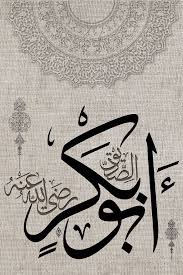 أَبُو بَكْرٍ
الصديق
رضي الله عنه